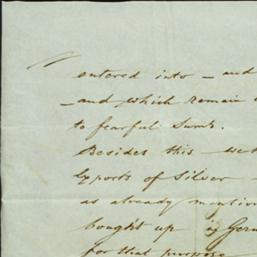 entered into – and
– and which remain
to fearful Sums.
Besides this – we
Exports of Silver
as already mention
bought up in Germ
for that purpose